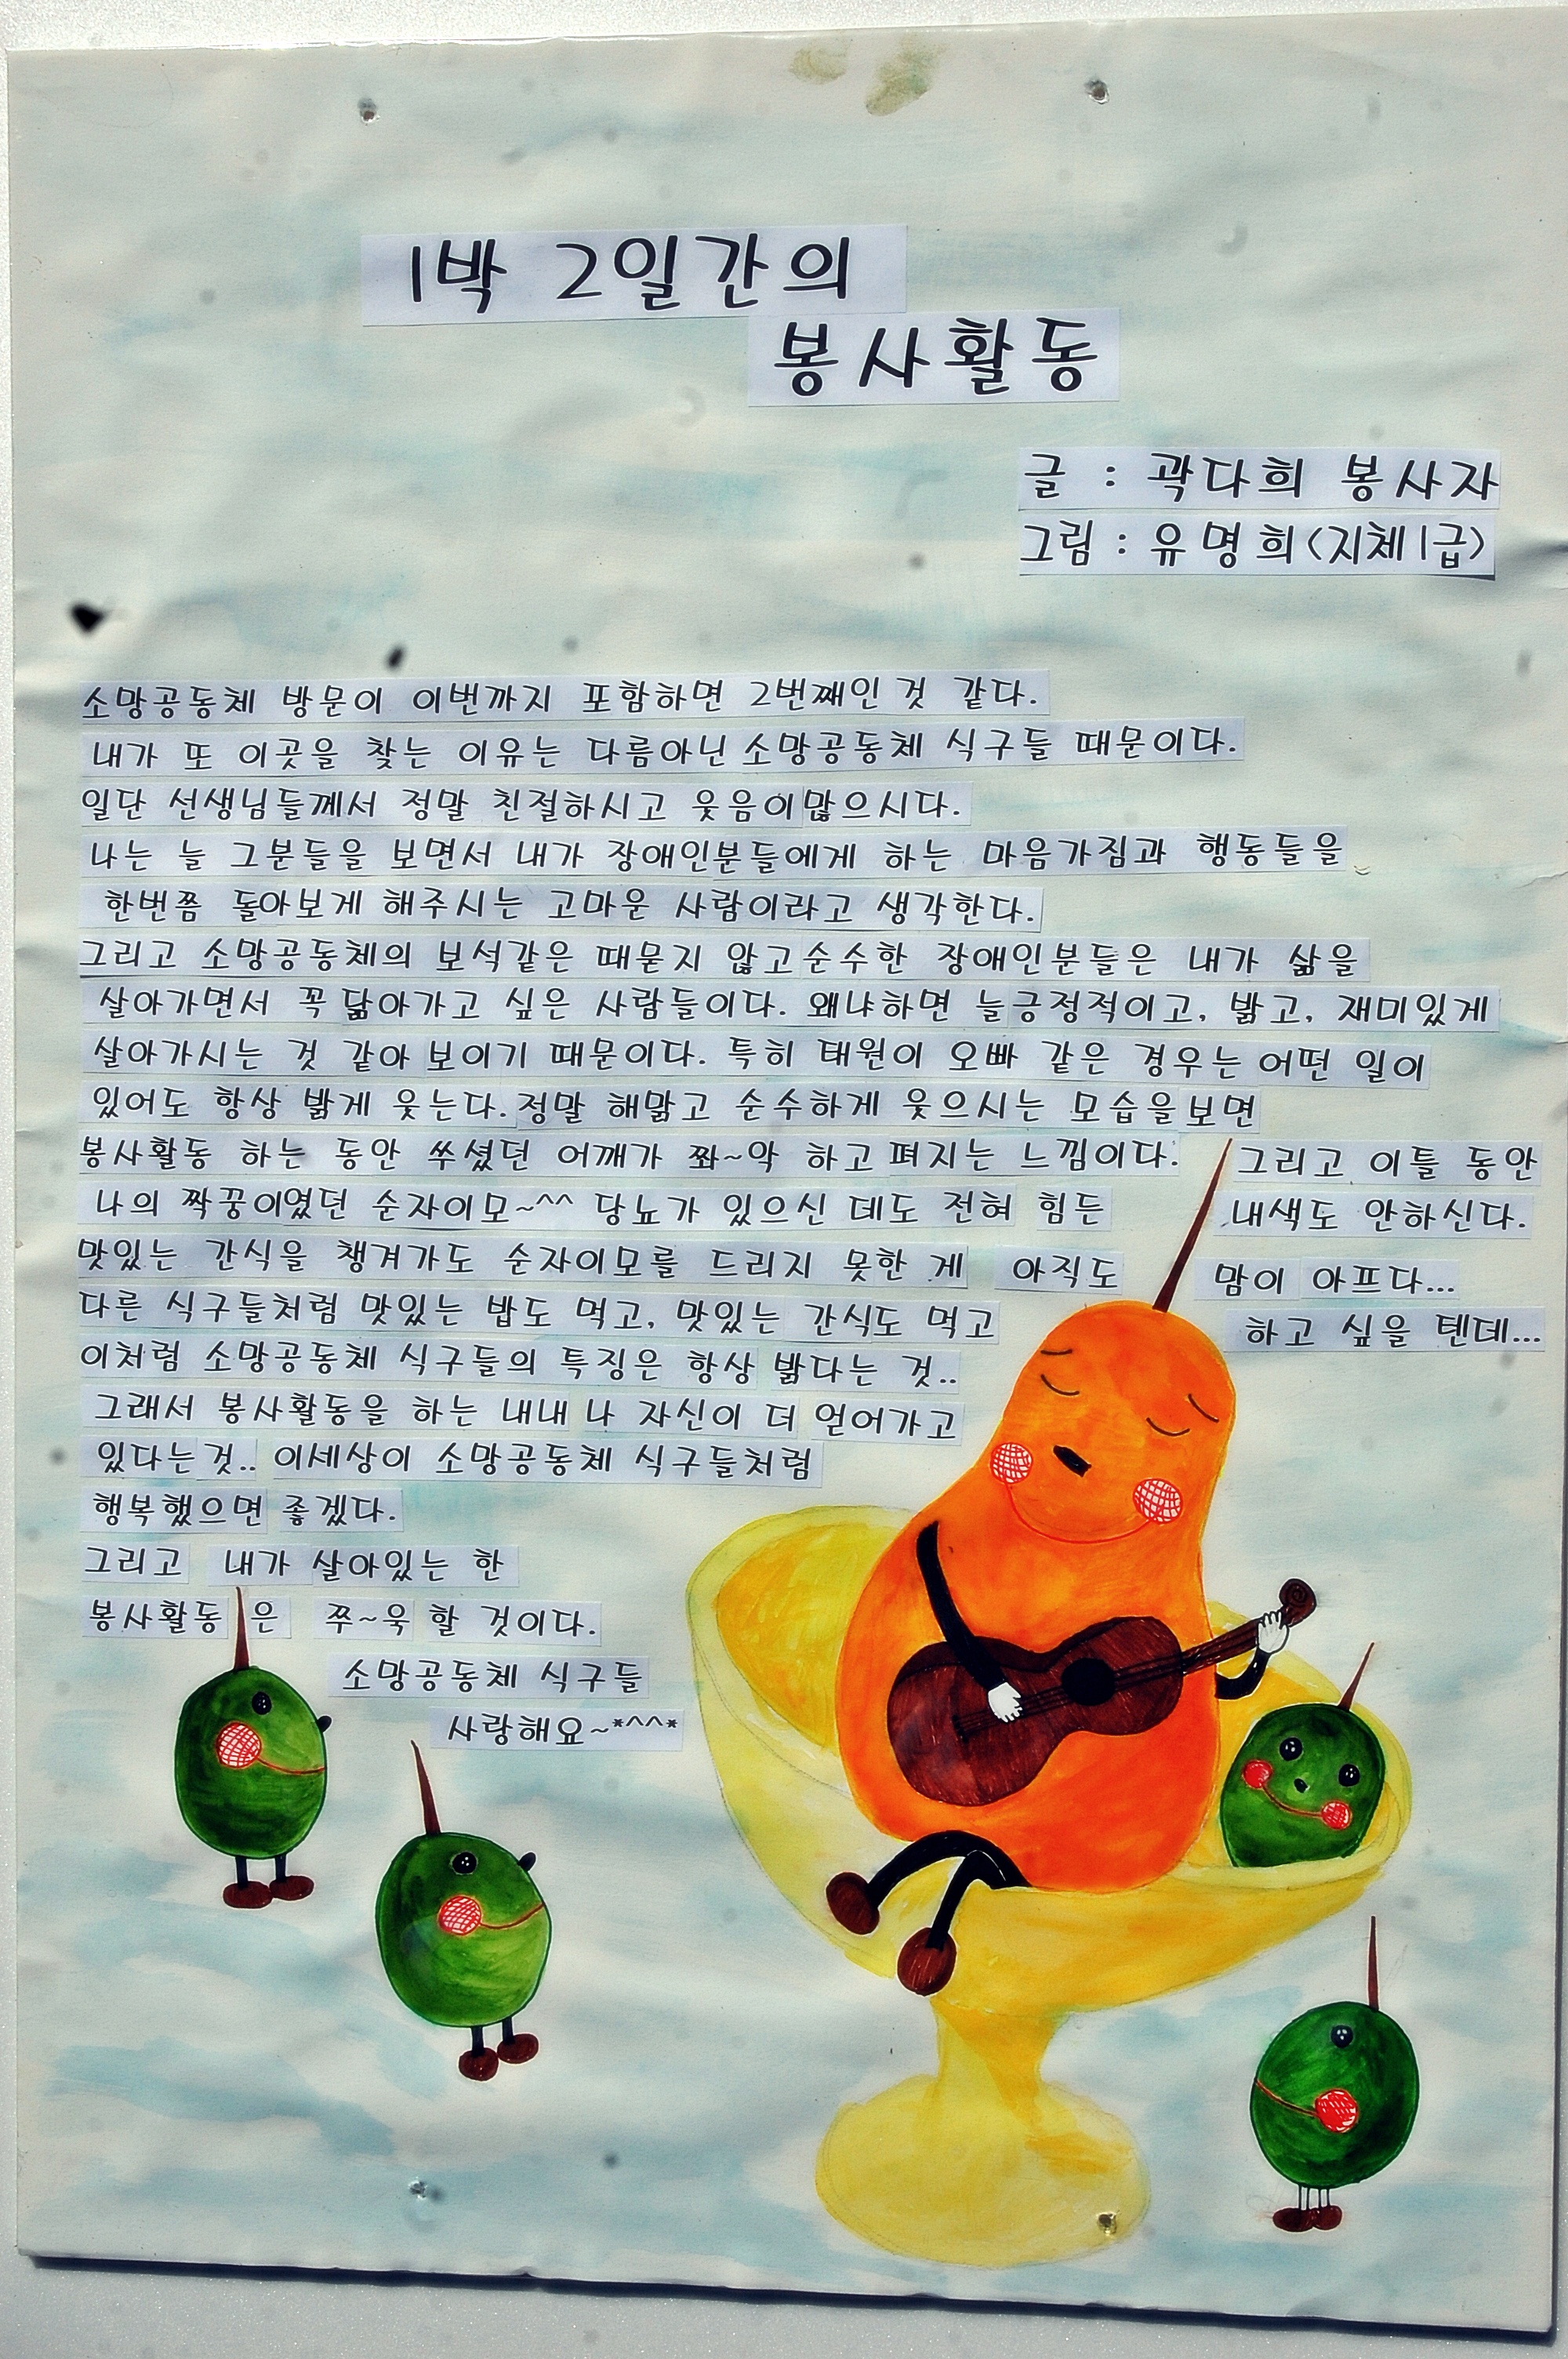 1박 2일간의
봉사활동
글 : 곽다희 봉사자
그림 : 유명희(지체1급)
소망공동체 방문이 이번까지 포함하면 2번째인 것 같다.
내가 또 이곳을 찾는 이유는 다름아닌 소망공동체 식구들 때문이다.
일단 선생님들께서 정말 친절하시고 웃음이 많으시다.
나는 늘 그분들을 보면서 내가 장애인분들에게 하는 마음가짐과 행동들을
한번쯤 돌아보게 해주시는 고마운 사람이라고 생각한다.
그리고 소망공동체의 보석같은 때묻지 않고 순수한 장애인분들은 내가 삶을
살아가면서 꼭 닮아가고 싶은 사람들이다. 왜냐하면 늘 긍정적이고, 밝고, 재미있게
살아가시는 것 같아 보이기 때문이다. 특히 태원이 오빠 같은 경우는 어떤 일이
있어도 항상 밝게 웃는다. 정말 해맑고 순수하게 웃으시는 모습을 보면
봉사활동 하는 동안 쑤셨던 어깨가 쫘~악 하고 펴지는 느낌이다. 그리고 이틀 동안
나의 짝꿍이였던 순자이모~^^ 당뇨가 있으신 데도 전혀 힘든 내색도 안하신다.
맛있는 간식을 챙겨가도 순자이모를 드리지 못한 게 아직도 맘이 아프다...
다른 식구들처럼 맛있는 밥도 먹고, 맛있는 간식도 먹고 하고 싶을 텐데...
이처럼 소망공동체 식구들의 특징은 항상 밝다는 것..
그래서 봉사활동을 하는 내내 나 자신이 더 얻어가고
있다는것.. 이세상이 소망공동체 식구들처럼
행복했으면 좋겠다.
그리고 내가 살아있는 한
봉사활동은 쭈~욱 할 것이다.
소망공동체 식구들
사랑해요~*^^*